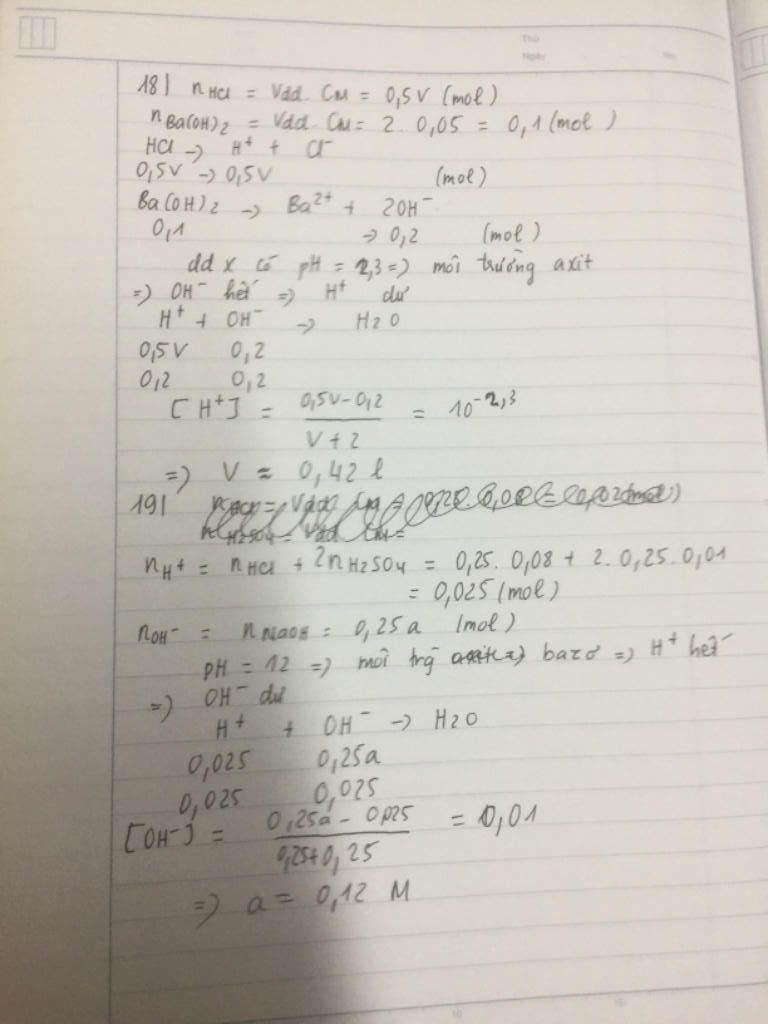 Thứ
Ngày
18| nHCl = Vdd. CM = 0,5V (mol)
nBa(OH)2 = Vdd. CM = 2. 0,05 = 0,1 (mol)
HCl -> H+ + Cl-
0,5V -> 0,5V (mol)
Ba(OH)2 -> Ba2+ + 2OH-
0,1 -> 0,2 (mol)
dd x có pH = 2,3 => môi trường axit
=> OH- hết => H+ dư
H+ + OH- -> H2O
0,5V 0,2
0,2 0,2
[H+] = (0,5V-0,2)/(V+2) = 10^-2,3
=> V ≈ 0,42 l
19|
nH+ = nHCl + 2nH2SO4 = 0,25. 0,08 + 2. 0,25. 0,01
= 0,025 (mol)
nOH- = nNaOH = 0,25a (mol)
pH = 12 => môi trg bazơ => H+ hết
=> OH- dư
H+ + OH- -> H2O
0,025 0,25a
0,025 0,025
[OH-] = (0,25a - 0,025)/(0,25+0,25) = 0,01
=> a = 0,12 M